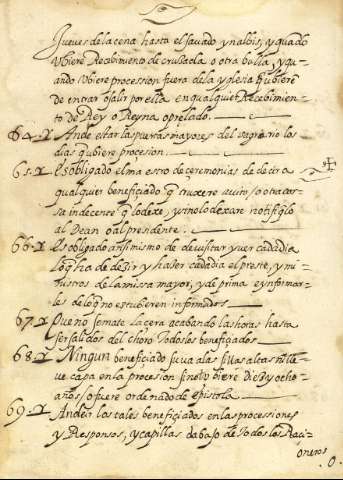 Jueves de la cena hasta el savado ynalbis, y quãdo
Ubiere Recebimiento de crusada o otra bulla, y qu-
ando Ubiere procession fuera de la yglesia q̃ ubiere
de entrar o salir por ella en qualquier Recebimien-
to de Rey o Reyna o prelado.
64. Ande estar las puertas mayores del sagrario los
dias q̃ ubiere procesion.
65. Es obligado el maestro de ceremonias de decir a
qualquier beneficiado q̃ truxere o otra co-
sa indecente q̃ lo dexe, y sino lo dexare notifiq̃lo
al Dean o al presidente.
66. Es obligado ansimismo de visitar y ver cada dia
lo q̃ ha de desir y haser cada dia el preste, y mi-
nistros de la missa mayor, y de prima e ynformar-
les de lo q̃ no estubieren informados
67. Que no se mate la cera acabando las horas hasta
ser salidos del choro todos los benefiçados
68. Ningun beneficiado suva a las sillas altas ni lle-
ve capa en la procesion sino ubiere diez y ocho
años, o fuere ordenado de epistola.
69. Anden los tales benefiçiados en las processiones
y Responsos, y capillas dabajo de todos los Raçi-
oneros